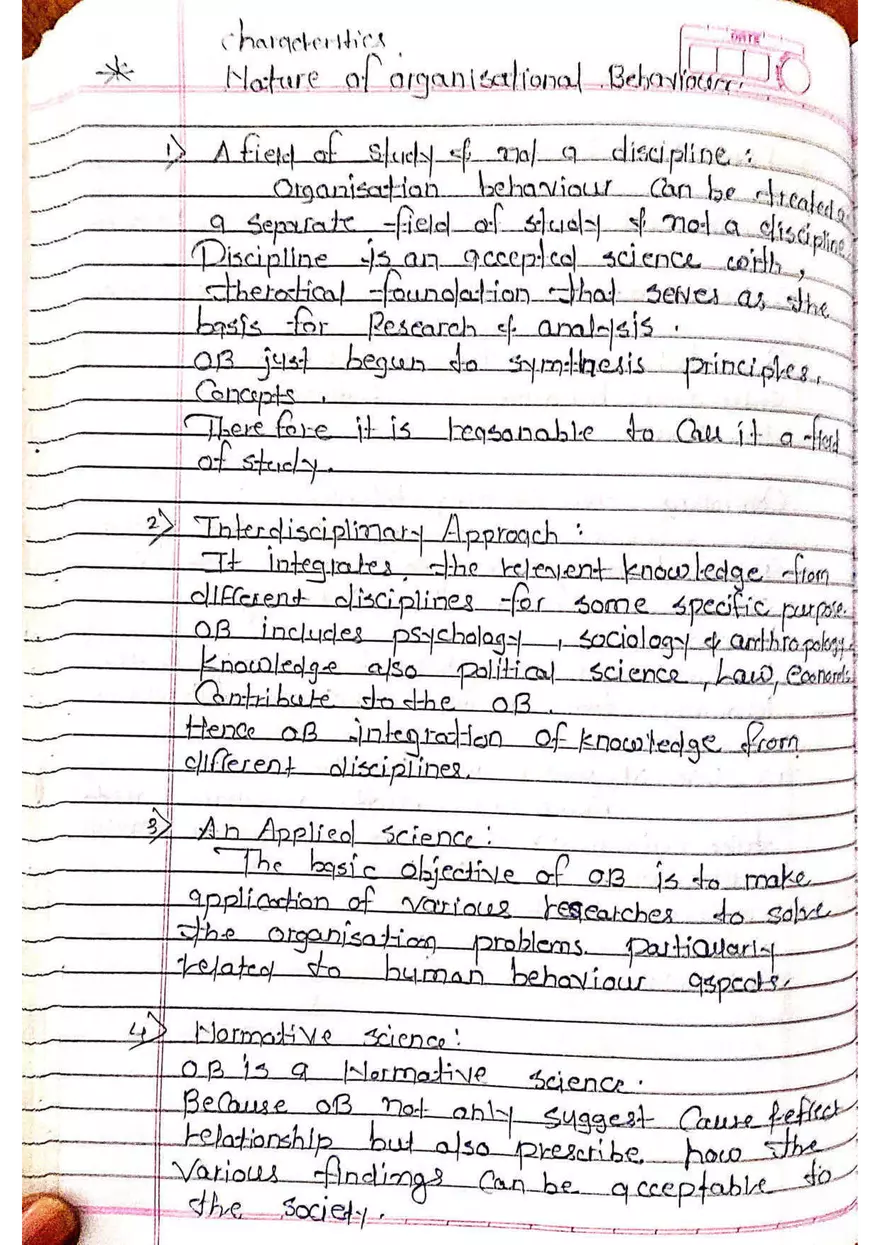 characteristics.
* Nature of organisational Behaviour.
DATE
1) A field of study & not a discipline :
Organisation behaviour can be treated a
a separate field of study & not a discipline
Discipline is an accepted science with,
therotical foundation that serves as the
basis for Research & analysis .
OB just begun to symthesis principles,
Concepts .
There fore it is reasonable to Call it a field
of study.
2) Interdisciplinary Approach :
It integrates, the relevent knowledge from
different disciplines for some specific purpose.
OB includes psychology , sociology & anthropology
knowledge also political science , Law,
Contribute to the OB .
Hence OB integration of knowledge from
different disciplines.
3) An Applied science :
The basic objective of OB is to make
application of various researches to solve
the organisation problems. particularly
related to human behaviour aspects.
4) Normative science :
OB is a Normative science .
Because OB not only suggest Cause & effect
relationship but also prescribe how the
various findings can be acceptable to
the society .